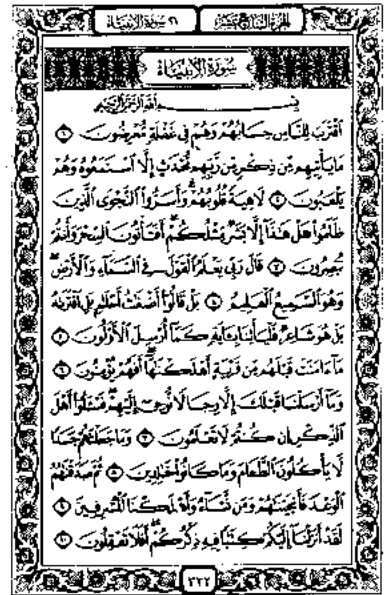 الجزء السابع عشر
٢١ سورة الأنبياء
سورة الأنبياء
بسم الله الرحمن الرحيم
اقترب للناس حسابهم وهم في غفلة معرضون ١
ما يأتيهم من ذكر من ربهم محدث إلا استمعوه وهم
يلعبون ٢ لاهية قلوبهم وأسروا النجوى الذين
ظلموا هل هذا إلا بشر مثلكم أفتأتون السحر وأنتم
تبصرون ٣ قال ربي يعلم القول في السماء والأرض
وهو السميع العليم ٤ بل قالوا أضغاث أحلام بل افتراه
بل هو شاعر فليأتنا بآية كما أرسل الأولون ٥
ما آمنت قبلهم من قرية أهلكناها أفهم يؤمنون ٦
وما أرسلنا قبلك إلا رجالا نوحي إليهم فسئلوا أهل
الذكر إن كنتم لا تعلمون ٧ وما جعلناهم جسدا
لا يأكلون الطعام وما كانوا خالدين ٨ ثم صدقناهم
الوعد فأنجيناهم ومن نشاء وأهلكنا المسرفين ٩
لقد أنزلنا إليكم كتابا فيه ذكركم أفلا تعقلون ١٠
٣٢٢